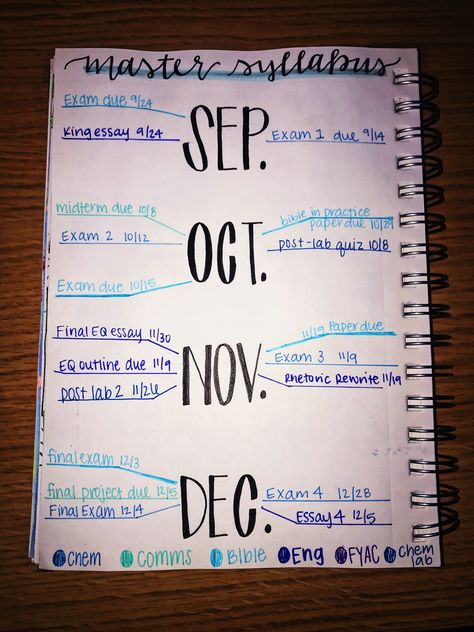 master syllabus
Exam due 9/24
King essay 9/24
SEP.
Exam 1 due 9/14
midterm due 10/8
Exam 2 10/12
Exam due 10/15
OCT.
bible in practice
paper due 10/29
post-lab quiz 10/8
Final EQ essay 11/30
EQ outline due 11/9
post lab 2 11/26
NOV.
11/19 Paper due
Exam 3 11/9
Rhetoric Rewrite 11/19
final exam 12/3
final project due 12/5
Final Exam 12/4
DEC.
Exam 4 12/28
Essay 4 12/5
Chem
Comms
Bible
Eng
FYAC
Chem
lab